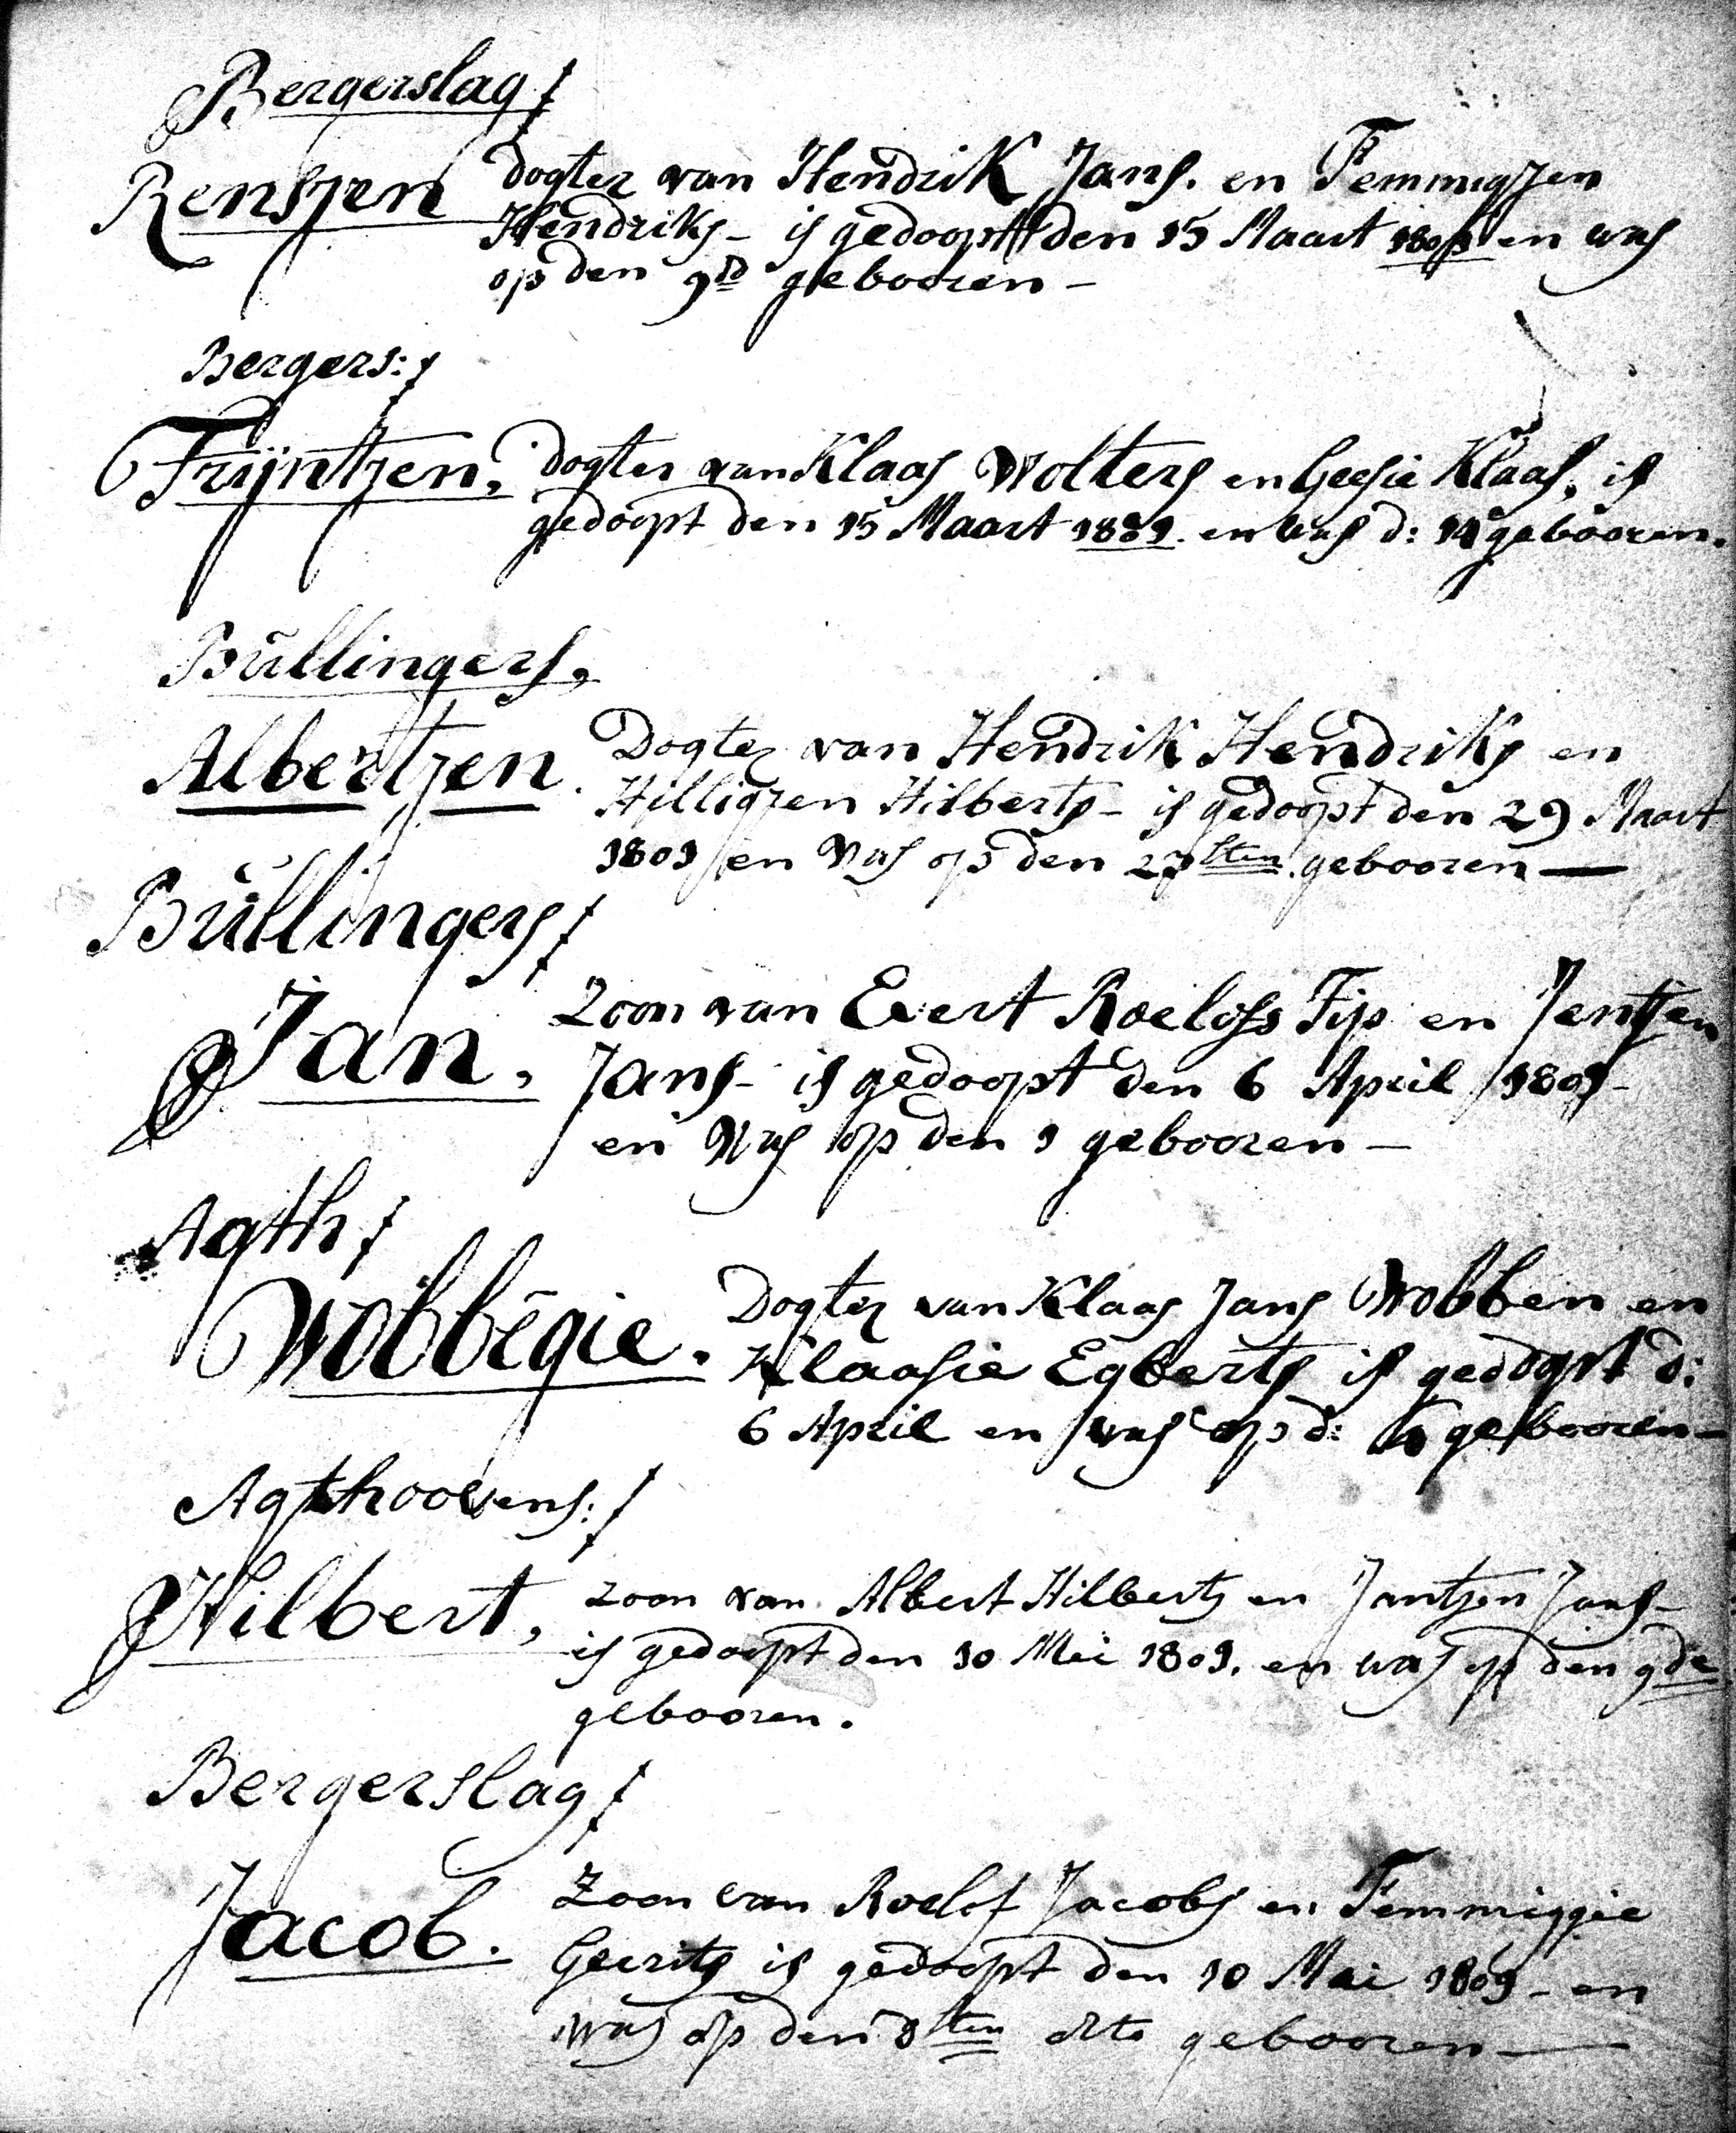 Bergerslag/
Rensjen Dogter van Hendrik Jans. en Femmigjen
Hendriks - is gedoopt den 15 Maart 1801 en was
op den 9d gebooren -
Bergers:/
Trijntjen, Dogter van Klaas Wolters en Geesie Klaas, is
gedoopt den 15 Maart 1801. en was d: 14 gebooren.
Bullingers,
Albertjen. Dogter van Hendrik Hendriks en
Hilligjen Hilberts - is gedoopt den 29 Maart
1801 en was op den 27sten gebooren —
Bullingers/
Jan, Zoon van Evert Roelofs Tip en Jentjen
Jans - is gedoopt den 6 April 1801 -
en was op den 1 gebooren —
Agth/
Wobbegie. Dogter van Klaas Jans Wobben en
Klaasie Egberts is gedoopt d:
6 April en was op d: 4 gebooren -
Agthoovens:/
Hilbert, zoon van Albert Hilberts en Jantjen Jans -
is gedoopt den 10 Mei 1801. en was op den 9de
gebooren.
Bergerslag/
Jacob. Zoon van Roelof Jacobs en Femmiggie
Geerits is gedoopt den 10 Mai 1801 - en
was op den 8sten dito gebooren —